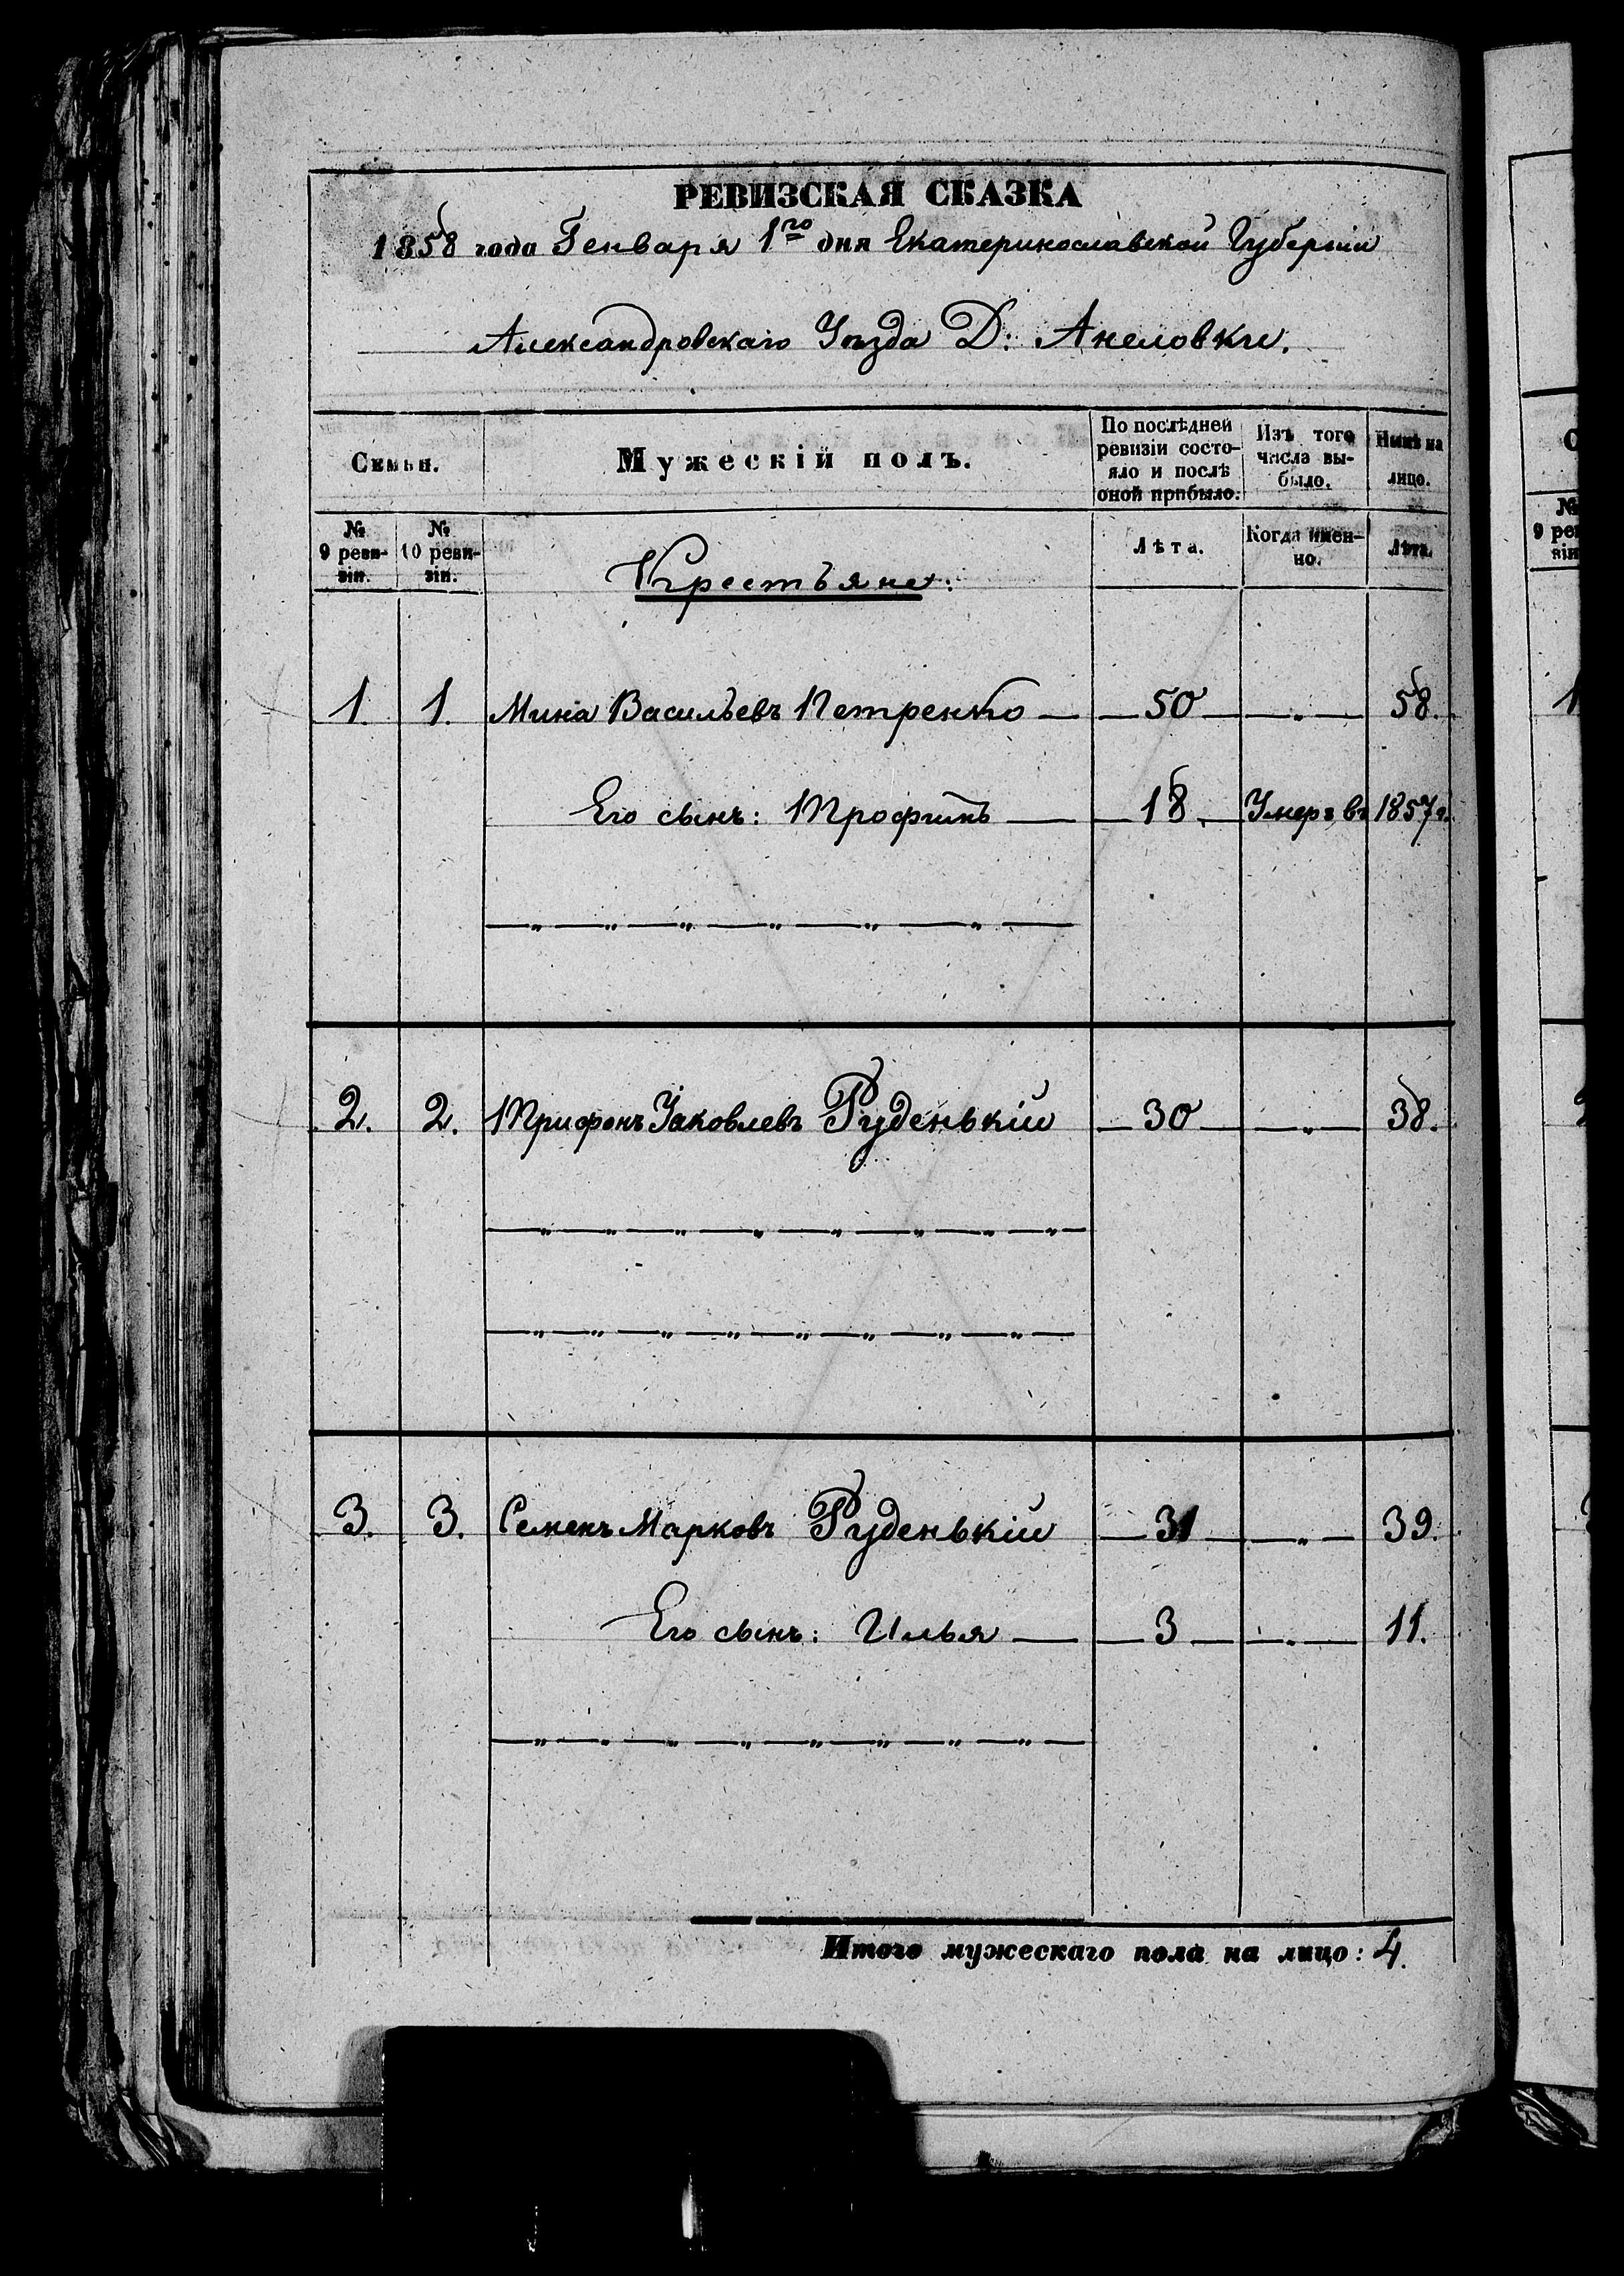 РЕВИЗСКАЯ СКАЗКА
1858 года Генваря 1го дня Екатеринославской Губерніи
Александровскаго Уѣзда Д: Анеловки.
Семьи. Мужескій полъ. По послѣдней ревизіи состо-яло и послѣ оной прибыло. Изъ того числа вы-было. Нынѣ на лицо.
№ 9 реви-зіи. № 10 реви-зіи. Лѣта. Когда имен-но. Лѣта.
Крестьяне:
1. 1. Мина Васильевъ Петренко — 50 — „ — 58.
Его сынъ: Трофимъ — 18. Умеръ въ 1857 г.
2. 2. Трифонъ Яковлевъ Руденькій — 30 — „ — 38.
3. 3. Семенъ Марковъ Руденькій — 31 — „ — 39.
Его сынъ: Илья — 3 — „ — 11.
Итого мужескаго пола на лицо: 4.